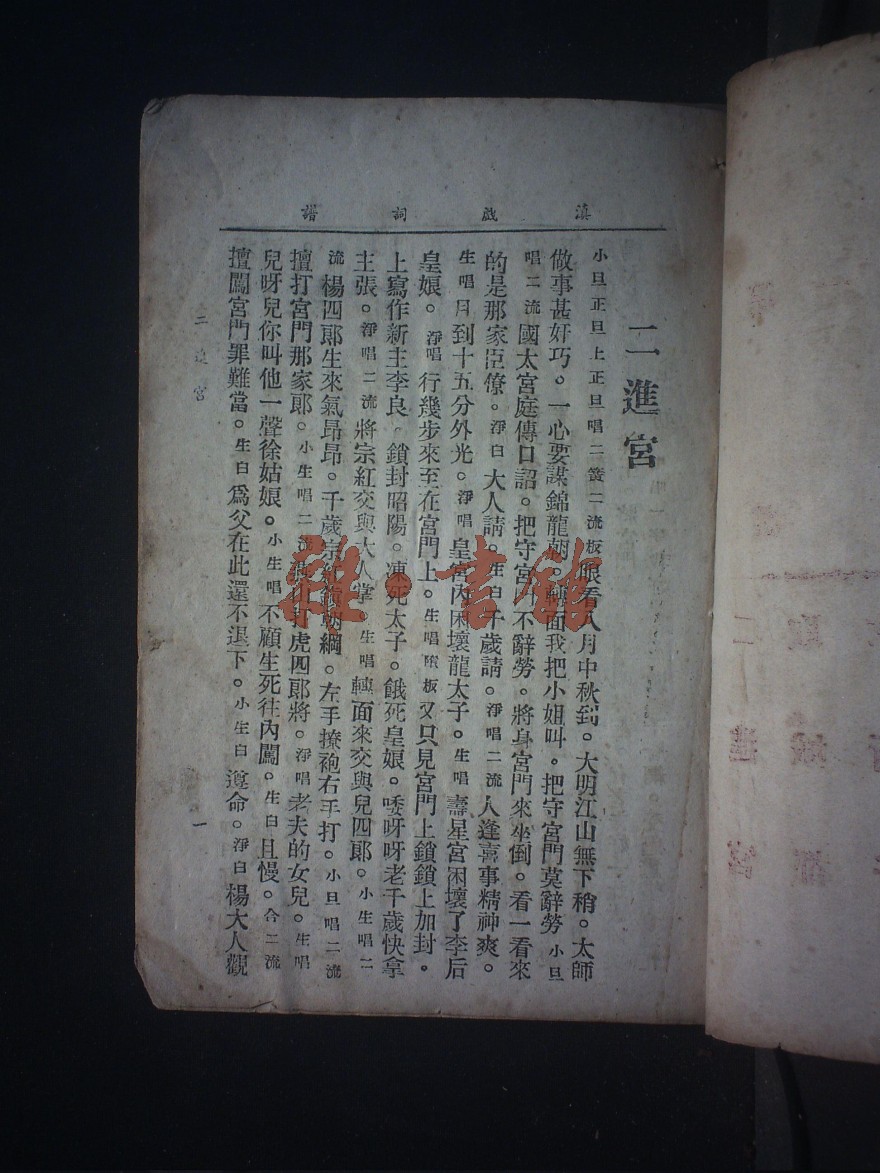 滇戲詞譜
二進宮
小旦正旦上正旦唱二簧二流板眼看八月中秋到。大明江山無下稍。太師
做事甚奸巧。一心要謀錦龍朝。轉面我把小姐叫。把守宮門莫辭勞 小旦
唱二流 國太宮庭傳口詔。把守宮門不辭勞。將身宮門來坐倒。看一看來
的是那家臣僚。淨白 大人請。生白 千歲請。淨唱二流 人逢喜事精神爽。
生唱 月到十五分外光。淨唱 皇宮內困壞龍太子。生唱 壽星宮困壞了李后
皇娘。淨唱 行幾步來至在宮門上。生唱 板 又只見宮門上鎖鎖上加封。
上寫作新主李良。鎖封昭陽。凍死太子。餓死皇娘。唩呀呀老千歲快拿
主張。淨唱二流 將宗紅交與大人掌。生唱 轉面來交與兒四郎。小生唱二
流 楊四郎生來氣昂昂。千歲宗紅鎮朝綱。左手撩袍右手打。小旦唱二流
擅打宮門那家郎。小生唱二流 打虎四郎將。淨唱 老夫的女兒。生唱
兒呀兒你叫他一聲徐姑娘。小生唱 不顧生死往內闖。生白 且慢。合二流
擅闖宮門罪難當。生白 爲父在此還不退下。小生白 遵命。淨白 楊大人觀
二進宮
一
雜·書館